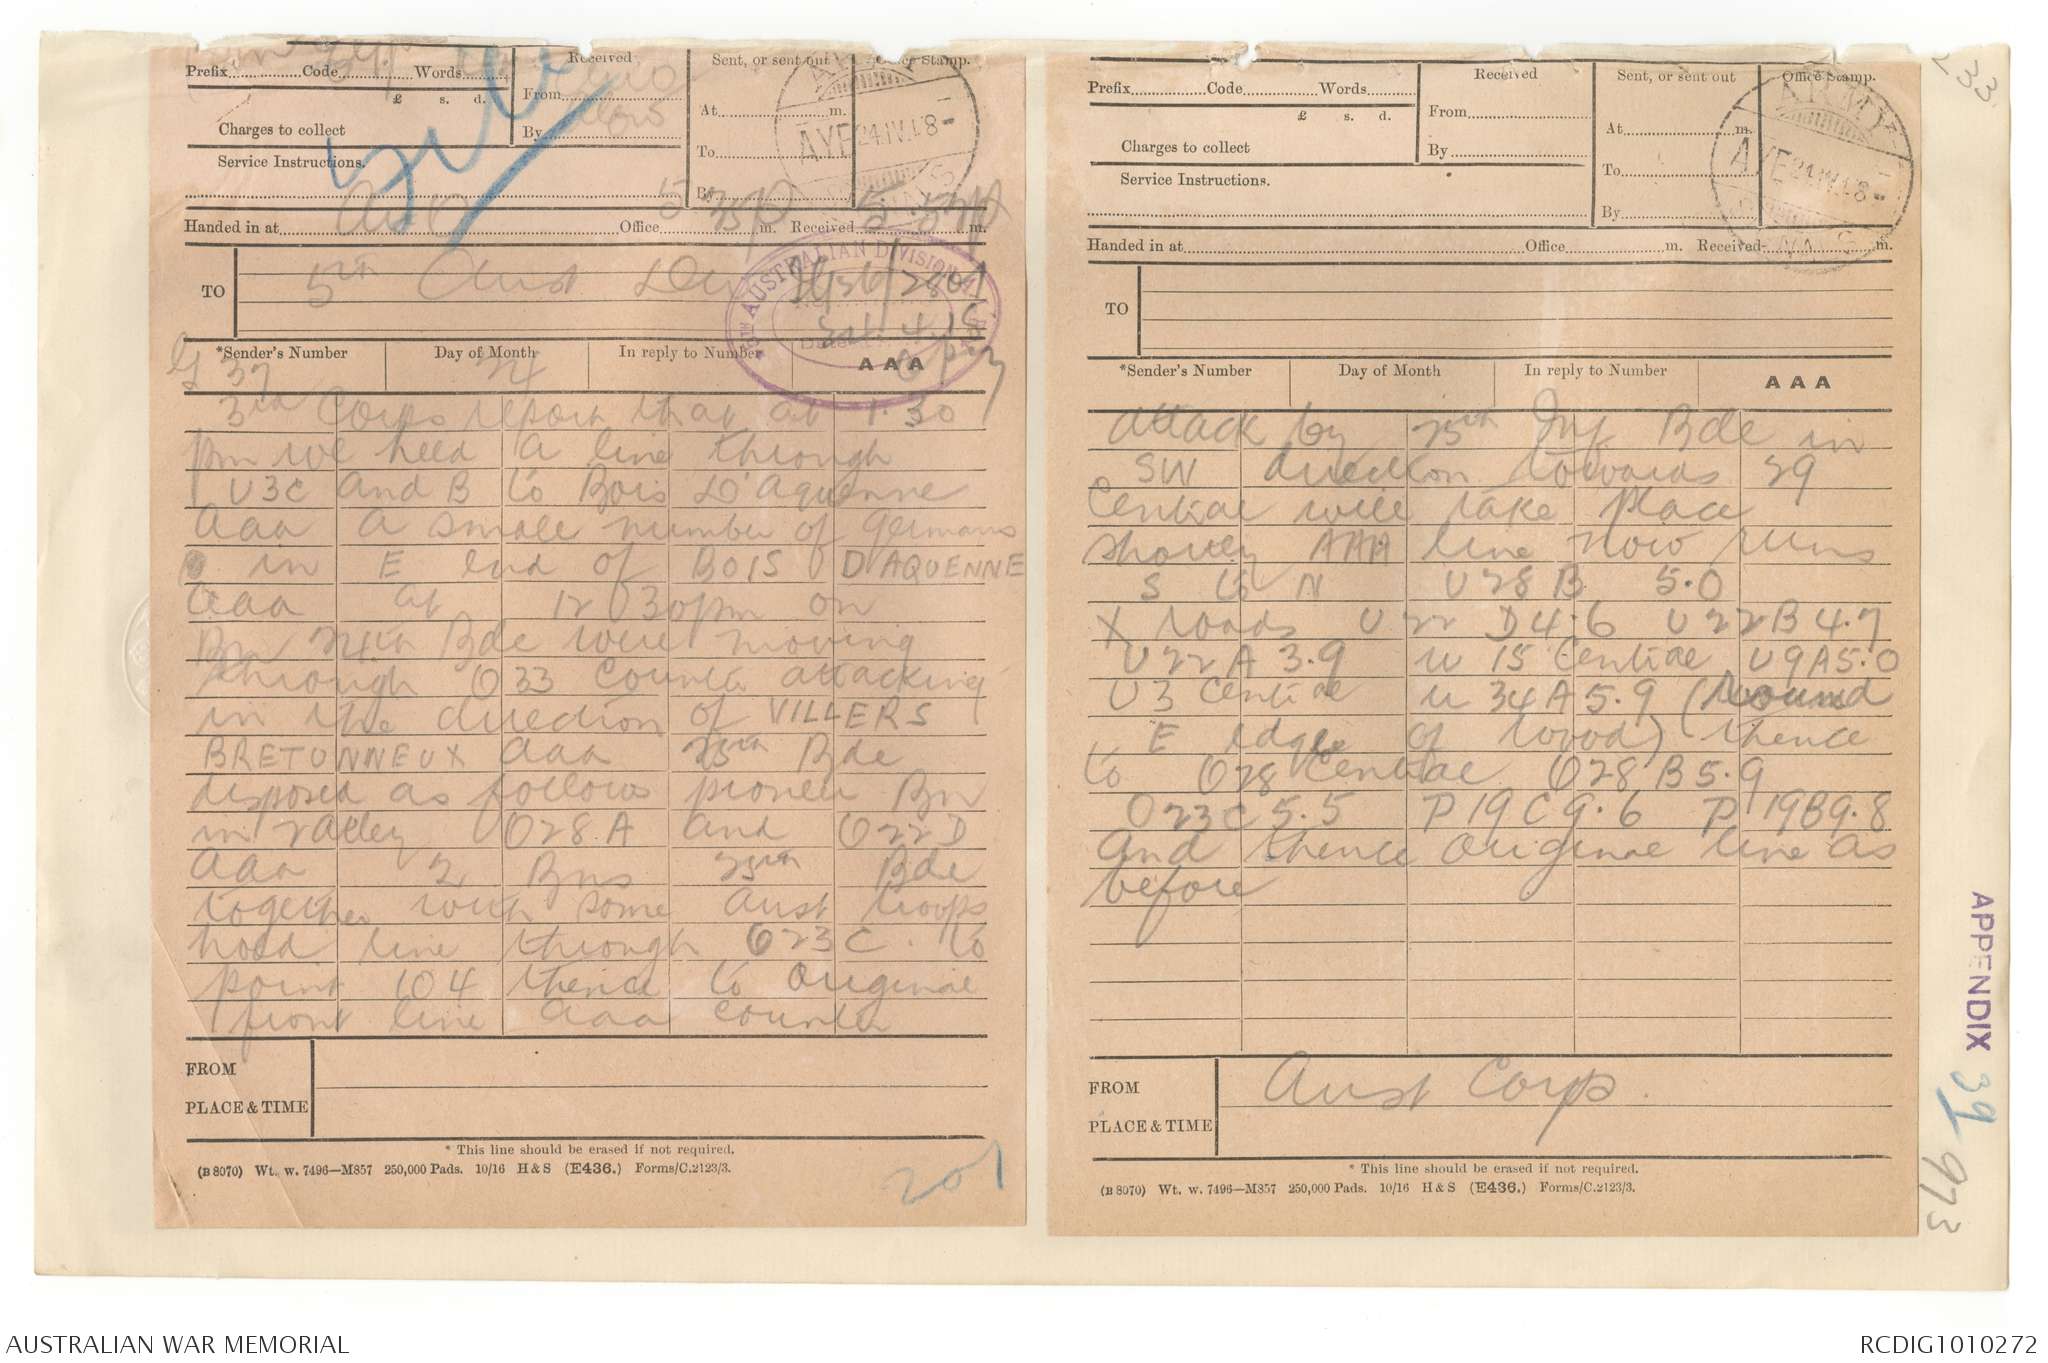 Prefix Code Words
£ s. d.
Charges to collect
Service Instructions.
Received
From
By
Sent, or sent out
At m.
To
By
Office Stamp.
AYE 24.IV.18
Handed in at Office m. Received 5.57p m.
TO 5th Aust Div
5TH AUSTRALIAN DIVISION
*Sender's Number Day of Month In reply to Number AAA
G 37 24
3rd Corps report that at 1.30
pm we held a line through
U3C and B to Bois D'Aquenne
aaa A small number of Germans
in E end of BOIS D'AQUENNE
aaa at 12 30pm on
Bn 24th Bde were moving
through O33 counter attacking
in the direction of VILLERS
BRETONNEUX aaa 25th Bde
disposed as follows pioneer Bn
in valley O28 A and O22D
aaa 2 Bns 25th Bde
together with some Aust troops
hold line through O23C to
point 104 thence to original
front line aaa counter
FROM
PLACE & TIME
* This line should be erased if not required.
(B 8070) Wt. w. 7496—M857 250,000 Pads. 10/16 H & S (E436.) Forms/C.2123/3.
201
Prefix Code Words
£ s. d.
Charges to collect
Service Instructions.
Received
From
By
Sent, or sent out
At m.
To
By
Office Stamp.
ARMY
AYE 24.IV.18
Handed in at Office m. Received m.
TO
*Sender's Number Day of Month In reply to Number AAA
attack by 25th Inf Bde in
SW direction towards 29
Central will take place
shortly AAA line now runs
S to N U28B 5.0
X roads U22 D4.6 U22B4.7
U22A 3.9 U 15 Central U9A5.0
U3 Central U 34A 5.9 (round
E edge of wood) thence
to O28 Central O28 B5.9
O23C 5.5 P19C9.6 P19B9.8
and thence original line as
before
FROM Aust Corps
PLACE & TIME
* This line should be erased if not required.
(B 8070) Wt. w. 7496—M857 250,000 Pads. 10/16 H & S (E436.) Forms/C.2123/3.
233
APPENDIX 39
973
AUSTRALIAN WAR MEMORIAL
RCDIG1010272